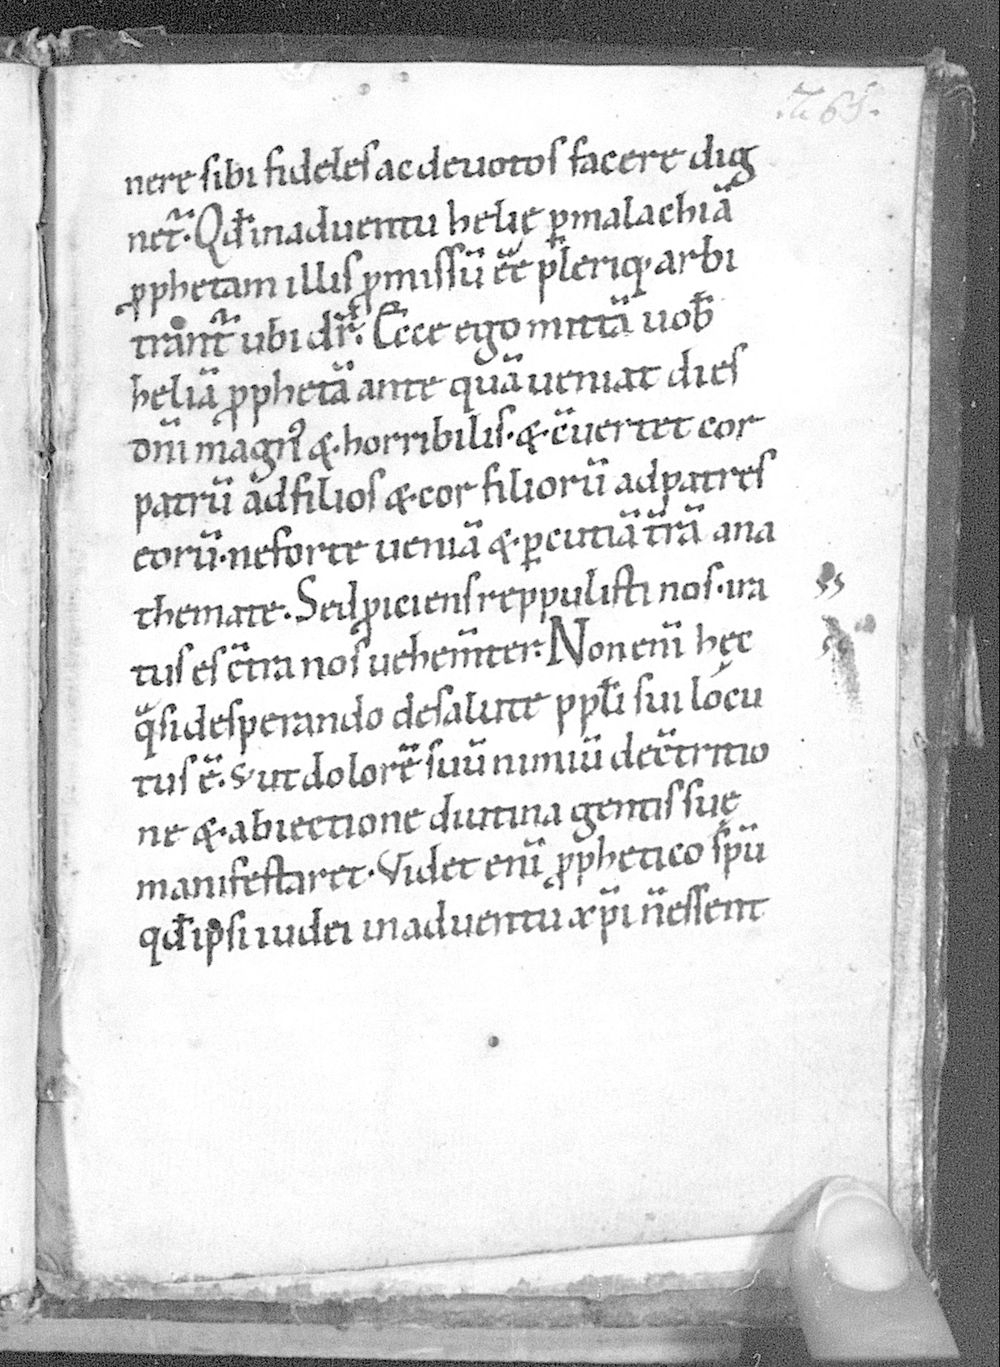 .n 65.
nere sibi fideles ac deuotos facere dig
net̃. Qđ in aduentu helię ꝑ malachiã
ꝓphetam illis ꝓmissũ ẽẽ pleriq; arbi
trant̃ ubi dr̃. Ecce ego mittã uob̃
heliã ꝓphetã ante quã ueniat dies
dñi magn᷒ &. horribilis. &. c̃uertet cor
patrũ ad filios &. cor filiorũ ad patres
eorũ. ne forte ueniã &. ꝑcutiã t̃rã ana
themate. Sed ꝓiciens reppulisti nos. ira
tus es c̃tra nos uehem̃ter. Non enĩ hęc
q̃si desperando de salute ppl̃i sui locu
tus ẽ. s; ut dolorẽ suũ nimiũ de c̃tritio
ne &. abiectione diutina gentis suę
manifestaret. Videt enĩ ꝓphetico sp̃ũ
qđ ipsi iudei in aduentu xp̃i ñ essent